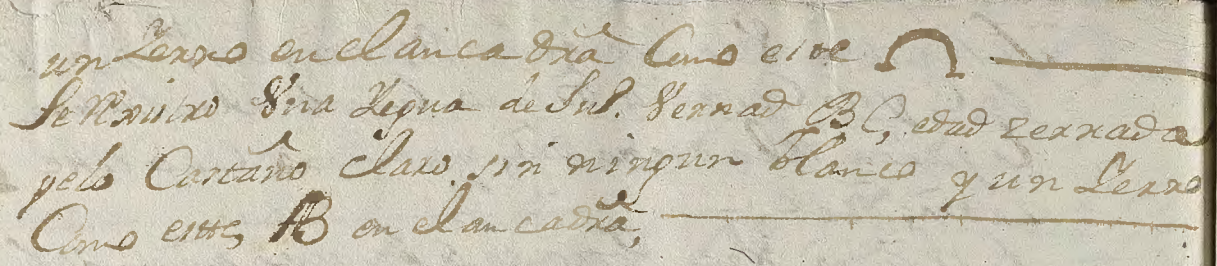 un Zerro en el anca dra Como este Ω
Se Rexistro Una Yegua de Jul. Vernad BC, edad zerrada
pelo Castaño claro sin ningun blanco y un Zerro
Como este, AB en el anca dra,